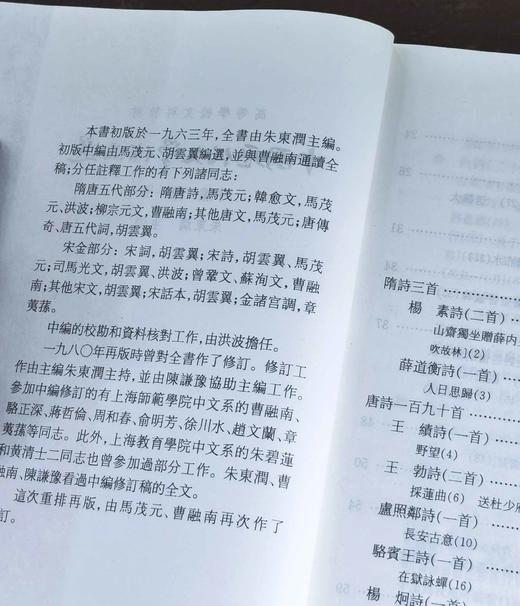 本書初版於一九六三年，全書由朱東潤主編。
初版中編由馬茂元、胡雲翼編選，並與曹融南通讀全
稿；分任註釋工作的有下列諸同志：
隋唐五代部分：隋唐詩，馬茂元；韓愈文，馬茂
元、洪波；柳宗元文，曹融南；其他唐文，馬茂元；唐傳
奇、唐五代詞，胡雲翼。
宋金部分：宋詞，胡雲翼；宋詩，胡雲翼、馬茂
元；司馬光文，胡雲翼、洪波；曾鞏文、蘇洵文，曹融
南；其他宋文，胡雲翼；宋話本，胡雲翼；金諸宮調，章
荑蓀。
中編的校勘和資料核對工作，由洪波擔任。
一九八〇年再版時曾對全書作了修訂。修訂工
作由主編朱東潤主持，並由陳謙豫協助主編工作。
參加中編修訂的有上海師範學院中文系的曹融南、
駱正深、蔣哲倫、周和春、俞明芳、徐川水、趙文蘭、章
荑蓀等同志。此外，上海教育學院中文系的朱碧蓮
和黃清士二同志也曾參加過部分工作。朱東潤、曹
融南、陳謙豫看過中編修訂稿的全文。
這次重排再版，由馬茂元、曹融南再次作了
訂。
隋詩三首
楊　素詩（二首）
山齋獨坐贈薛内
吹故林］(2)
薛道衡詩（一首）
人日思歸(3)
唐詩一百九十首
王　績詩（一首）
野望(4)
王　勃詩（二首）
採蓮曲(6)　送杜少府
盧照鄰詩（一首）
長安古意(10)
駱賓王詩（一首）
在獄詠蟬(16)
楊　炯詩（一首）